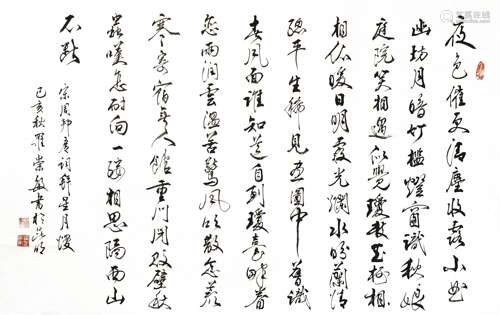 夜色催更清塵收露小曲
幽坊月暗竹檻燈窗識秋娘
庭院笑相遇似覺瓊枝玉樹相
相依暖日明霞光爛水盼蘭情
總平生稀見畫圖中舊識
春風面誰知道自到瓊臺畔眷
戀雨潤雲溫苦驚風吹散念荒
寒寄宿無人館重門閉敗壁秋
蟲嘆怎耐向一縷相思隔西山
不斷
宋周邦彦詞拜星月慢
己亥秋羅崇敏書於昆明